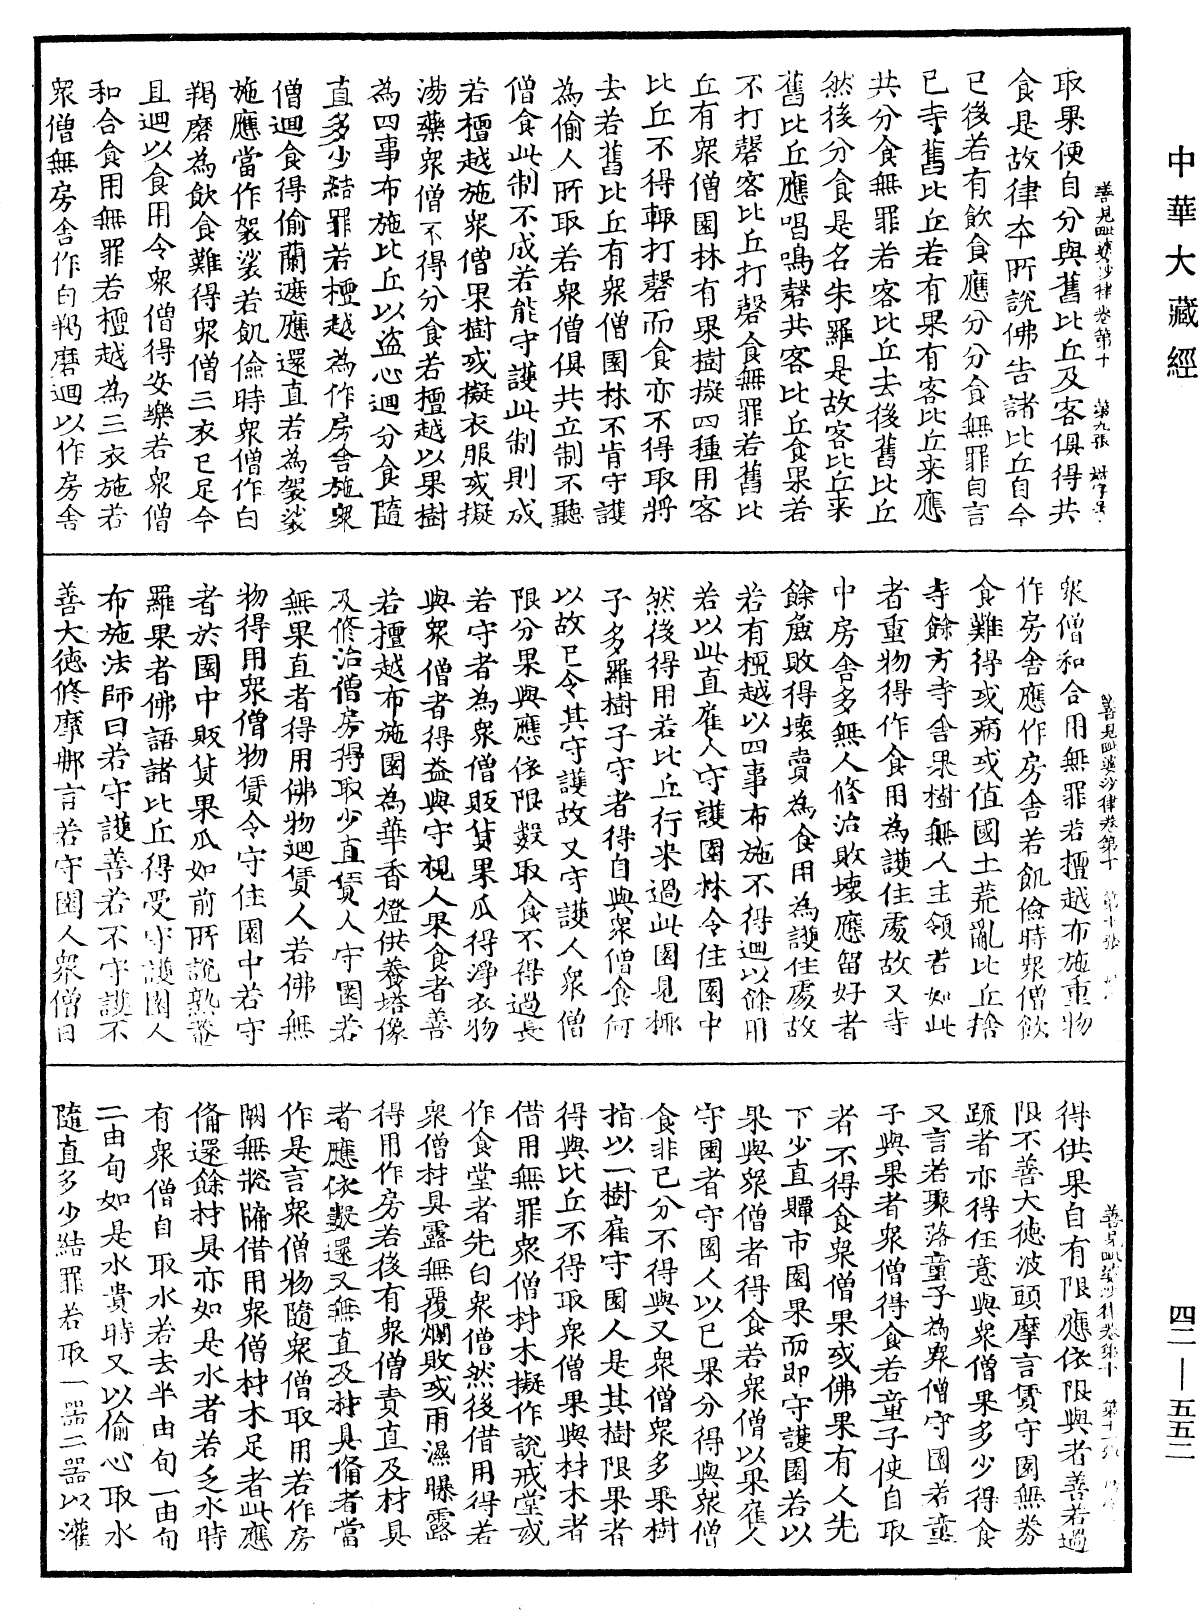 中華大藏經
善見毗婆沙律卷第十 第九張
取果便自分與舊比丘及客俱得共
食是故律本所說佛告諸比丘自今
已後若有飲食應分分食無罪自言
已寺舊比丘若有果有客比丘来應
共分食無罪若客比丘去後舊比丘
然後分食是名朱羅是故客比丘来
舊比丘應唱鳴磬共客比丘食果若
不打磬客比丘打磬食無罪若舊比
丘有衆僧園林有果樹擬四種用客
比丘不得輙打磬而食亦不得取將
去若舊比丘有衆僧園林不肯守護
為偷人所取若衆僧俱共立制不聽
僧食此制不成若能守護此制則成
若檀越施衆僧果樹或擬衣服或擬
湯藥衆僧不得分食若檀越以果樹
為四事布施比丘以盗心迴分食隨
直多少結罪若檀越為作房舍施衆
僧迴食得偷蘭遮應還直若為袈裟
施應當作袈裟若飢儉時衆僧作白
羯磨為飲食難得衆僧三衣已足今
且迴以食用令衆僧得安樂若衆僧
和合食用無罪若檀越為三衣施若
衆僧無房舍作白羯磨迴以作房舍
善見毗婆沙律卷第十 第十張
衆僧和合用無罪若檀越布施重物
作房舍應作房舍若飢儉時衆僧飲
食難得或病或值國土荒亂比丘捨
寺餘方寺舍果樹無人主領若如此
者重物得作食用為護住處故又寺
中房舍多無人修治敗壞應留好者
餘麁敗得壞賣為食用為護住處故
若有檀越以四事布施不得迴以餘用
若以此直雇人守護園林令住園中
然後得用若比丘行来過此園見椰
子多羅樹子守者得自與衆僧食何
以故已令其守護故又守護人衆僧
限分果與應依限數取食不得過長
若守者為衆僧販貨果瓜得淨衣物
與衆僧者得益與守視人果食者善
若檀越布施園為華香燈供養塔像
及修治僧房得取少直賃人守園若
無果直者得用佛物迴賃人若佛無
物得用衆僧物賃令守住園中若守
者於園中販貨果瓜如前所說熟番
羅果者佛語諸比丘得受守護園人
布施法師曰若守護善若不守護不
善大德修摩那言若守園人衆僧日
善見毗婆沙律卷第十 第十一張
得供果自有限應依限與者善若過
限不善大德波頭摩言賃守園無券
䟽者亦得任意與衆僧果多少得食
又言若聚落童子為衆僧守園若童
子與果者衆僧得食若童子使自取
者不得食衆僧果或佛果有人先
下少直贉市園果而即守護園若以
果與衆僧者得食若衆僧以果雇人
守園者守園人以已果分得與衆僧
食非已分不得與又衆僧衆多果樹
指以一樹雇守園人是其樹限果者
得與比丘不得取衆僧果與材木者
借用無罪衆僧材木擬作說戒堂或
作食堂者先白衆僧然後借用得若
衆僧材具露無覆爛敗或雨濕曝露
得用作房若後有衆僧責直及材具
者應依數還又無直及材具備者當
作是言衆僧物隨衆僧取用若作房
闕無䆫牖借用衆僧材木足者此應
備還餘材具亦如是水者若乏水時
有衆僧自取水若去半由旬一由旬
二由旬如是水貴時又以偷心取水
隨直多少結罪若取一器二器以灌
四二—五五二